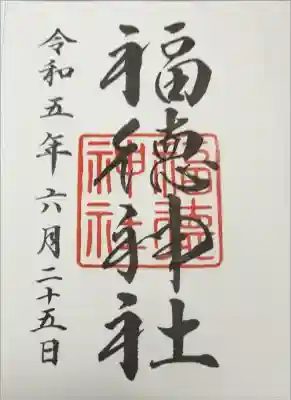 福徳神社
福徳神社
令和五年六月二十五日